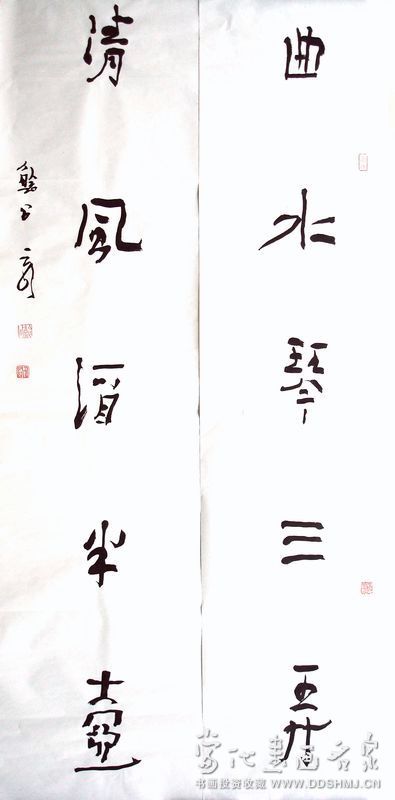 曲水琴三弄
清风酒半壶
当代书画名家
书画投资收藏 WWW.DDSHMJ.CN